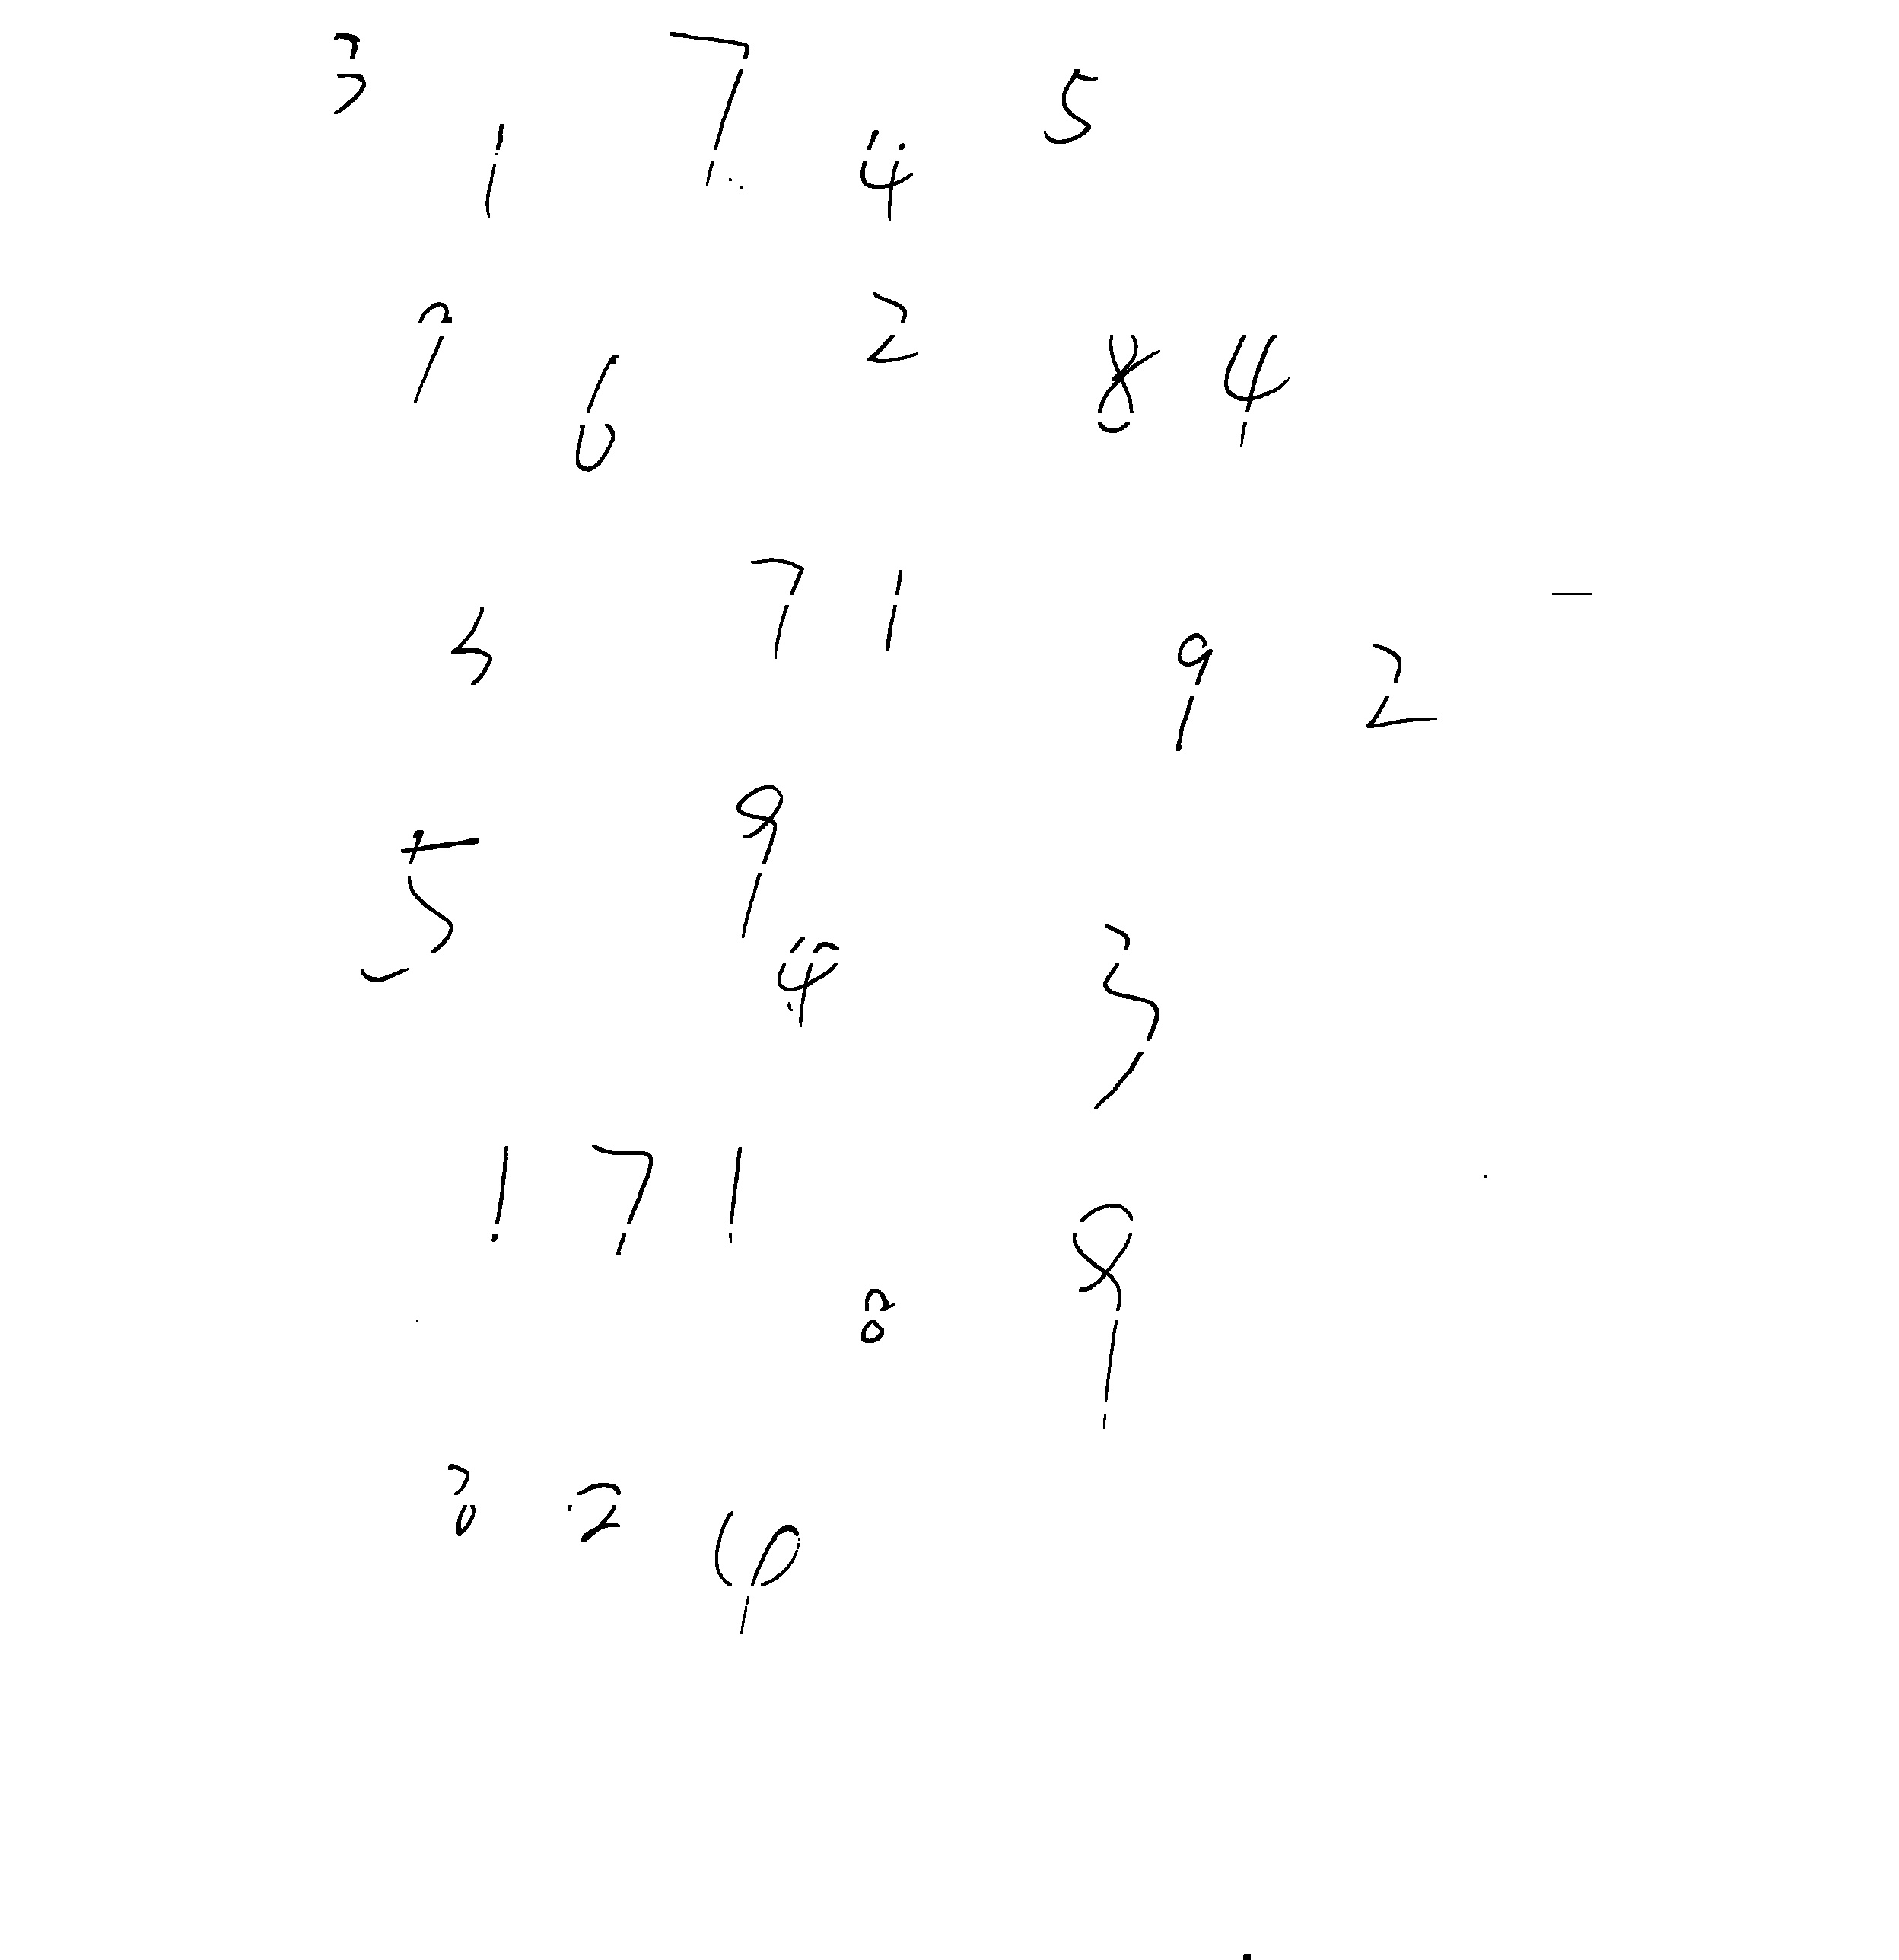 3 1 7 4 5
9 6 2 8 4
5 7 1 9 2
5 9 4 3
1 7 1 8 9
8 2 4